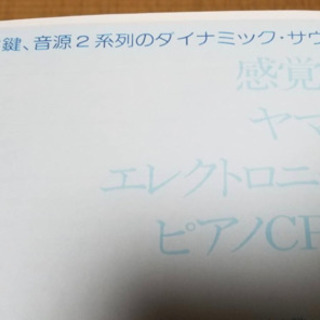 鍵、音源2系列のダイナミック・サウ
感覚
ヤマ
エレクトロニ
ピアノCP